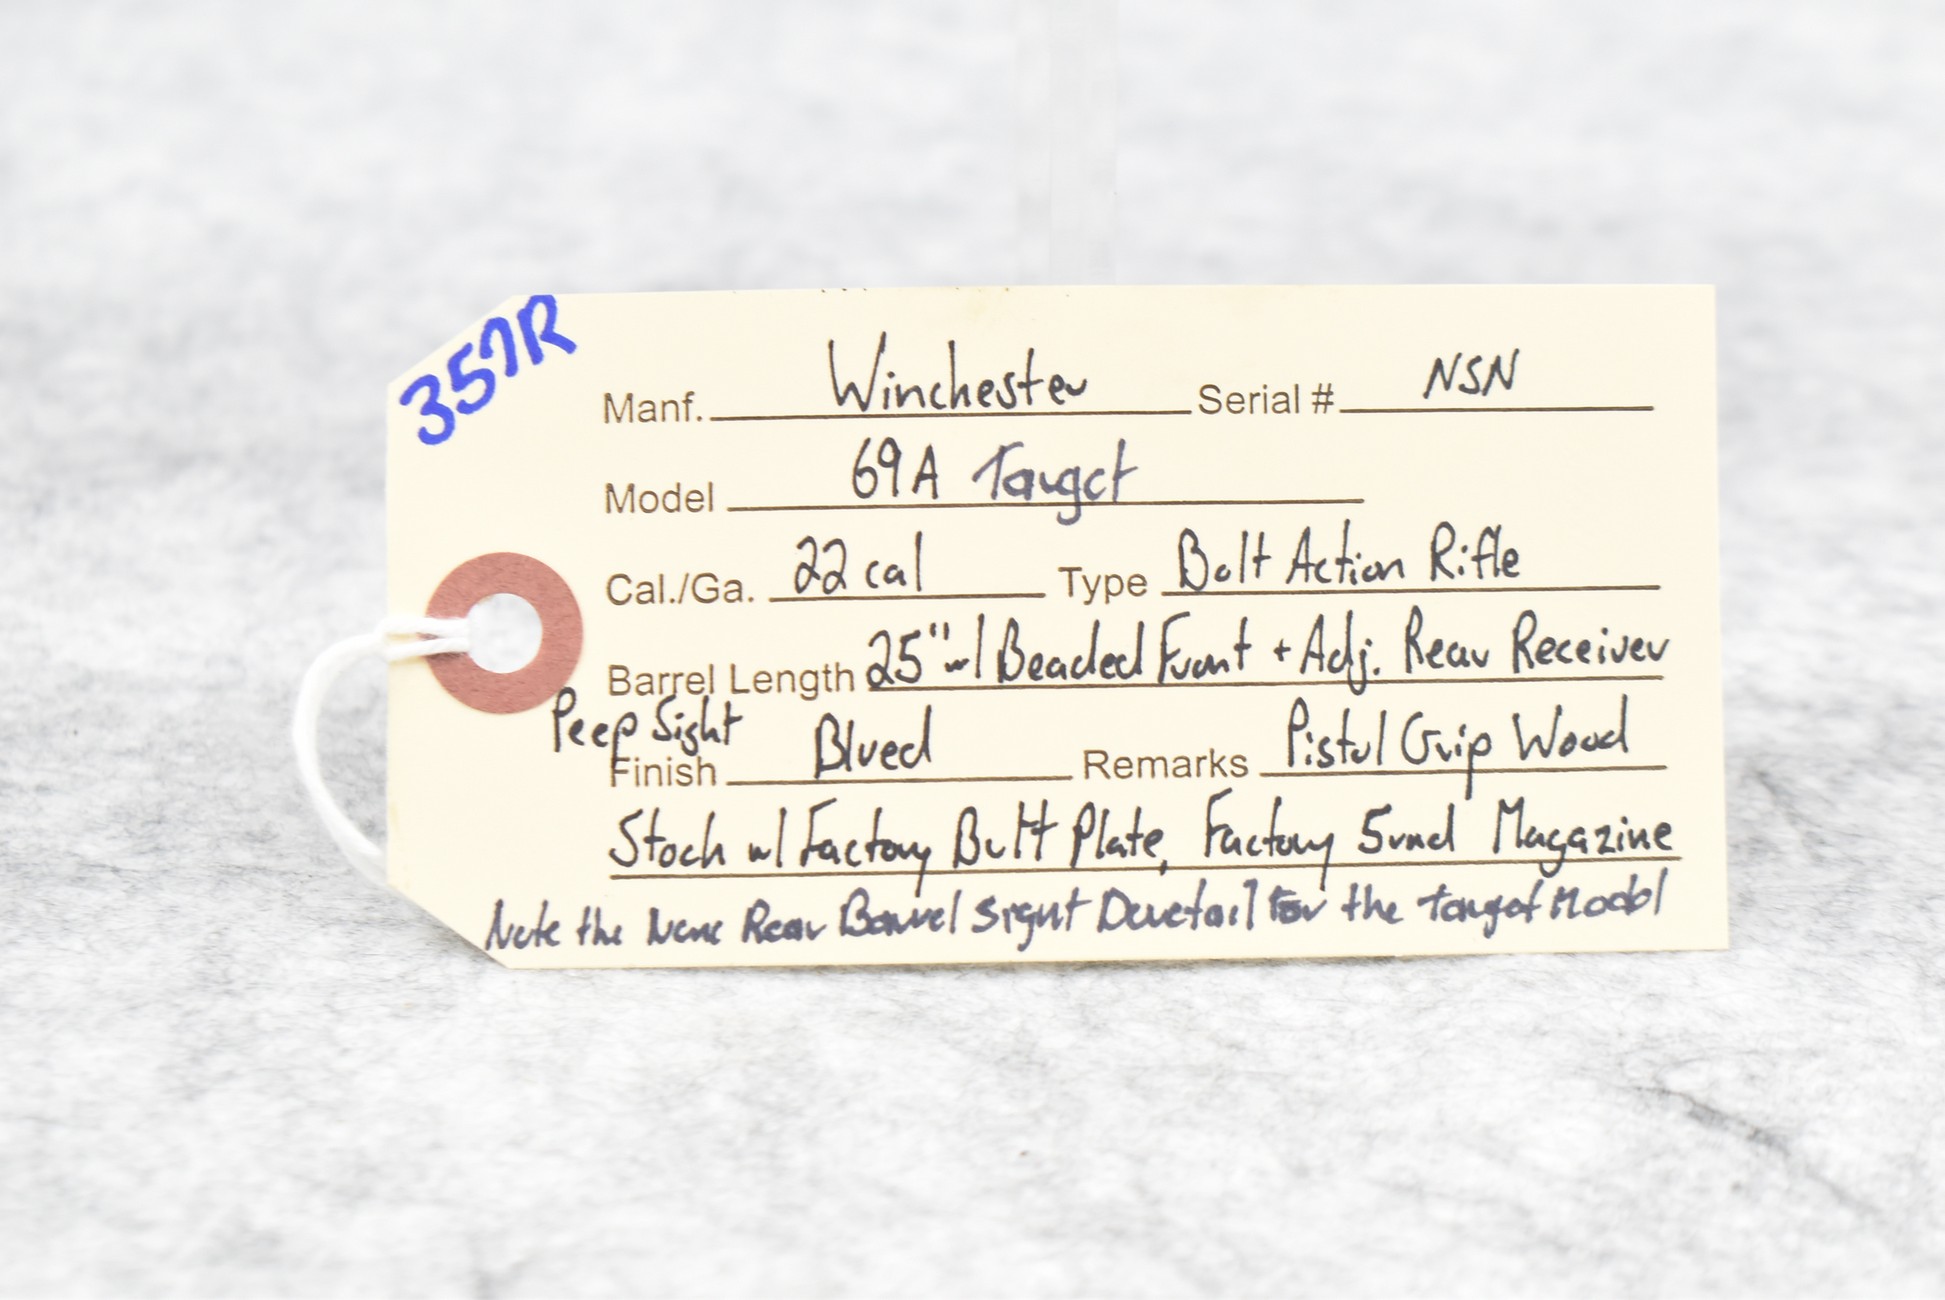 357R
Manf. Winchester Serial # NSN
Model 69A Target
Cal./Ga. 22 cal Type Bolt Action Rifle
Barrel Length 25" w/ Beaded Front + Adj. Rear Receiver
Peep Sight
Finish Blued Remarks Pistol Grip Wood
Stock w/ Factory Butt Plate, Factory 5rnd Magazine
Note the None Rear Barrel Sight Dovetail for the target Model